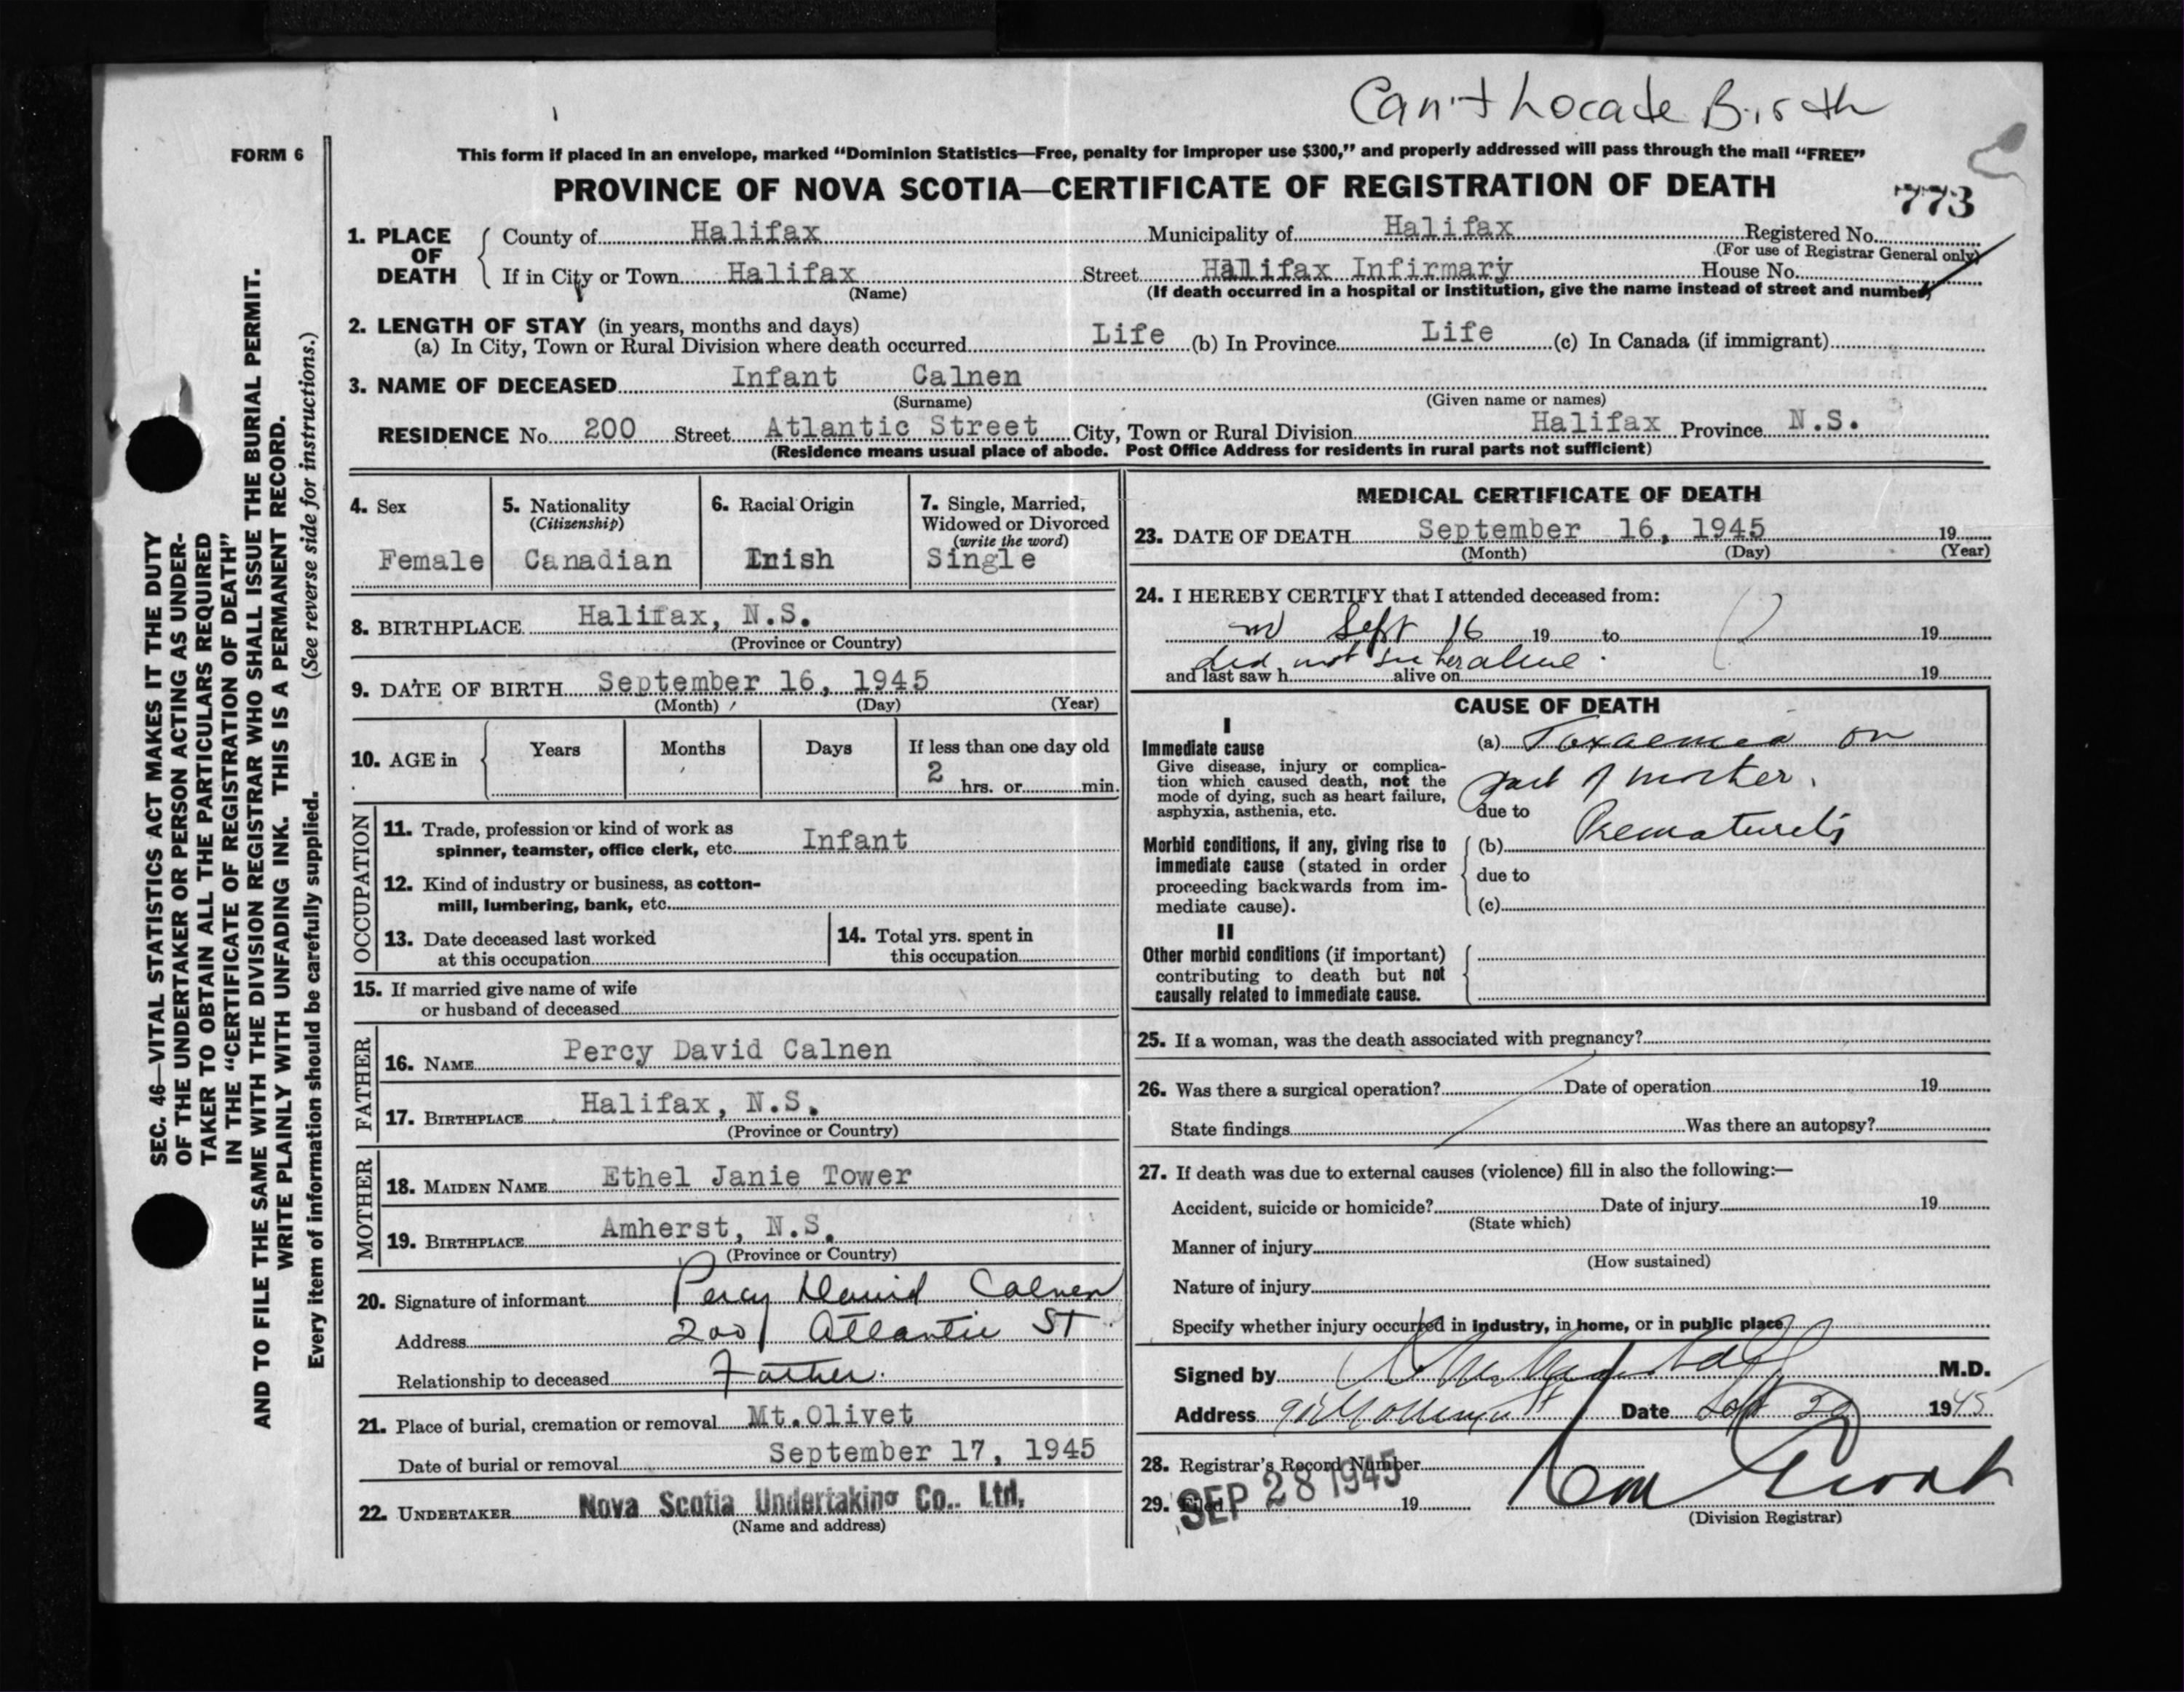 Can't Locate Birth
FORM 6
This form if placed in an envelope, marked "Dominion Statistics—Free, penalty for improper use $300," and properly addressed will pass through the mail "FREE"
PROVINCE OF NOVA SCOTIA—CERTIFICATE OF REGISTRATION OF DEATH
773
1. PLACE OF DEATH
County of Halifax Municipality of Halifax Registered No.
(For use of Registrar General only)
If in City or Town Halifax Street Halifax Infirmary House No.
(Name) (If death occurred in a hospital or institution, give the name instead of street and number)
2. LENGTH OF STAY (in years, months and days)
(a) In City, Town or Rural Division where death occurred Life (b) In Province Life (c) In Canada (if immigrant)
3. NAME OF DECEASED Infant Calnen
(Surname) (Given name or names)
RESIDENCE No. 200 Street Atlantic Street City, Town or Rural Division Halifax Province N.S.
(Residence means usual place of abode. Post Office Address for residents in rural parts not sufficient)
4. Sex
Female
5. Nationality
(Citizenship)
Canadian
6. Racial Origin
Irish
7. Single, Married,
Widowed or Divorced
(write the word)
Single
8. BIRTHPLACE Halifax, N.S.
(Province or Country)
9. DATE OF BIRTH September 16, 1945
(Month) (Day) (Year)
10. AGE in Years Months Days If less than one day old
2 hrs. or min.
OCCUPATION
11. Trade, profession or kind of work as
spinner, teamster, office clerk, etc. Infant
12. Kind of industry or business, as cotton-
mill, lumbering, bank, etc.
13. Date deceased last worked
at this occupation
14. Total yrs. spent in
this occupation
15. If married give name of wife
or husband of deceased
FATHER
16. NAME Percy David Calnen
17. BIRTHPLACE Halifax, N.S.
(Province or Country)
MOTHER
18. MAIDEN NAME Ethel Janie Tower
19. BIRTHPLACE Amherst, N.S.
(Province or Country)
20. Signature of informant Percy David Calnen
Address 200 Atlantic St
Relationship to deceased Father.
21. Place of burial, cremation or removal Mt.Olivet
Date of burial or removal September 17, 1945
22. UNDERTAKER Nova Scotia Undertaking Co., Ltd.
(Name and address)
MEDICAL CERTIFICATE OF DEATH
23. DATE OF DEATH September 16, 1945 19
(Month) (Day) (Year)
24. I HEREBY CERTIFY that I attended deceased from:
Sept 16 19 to 19
did not see her alive.
and last saw h alive on 19
CAUSE OF DEATH
I
Immediate cause
Give disease, injury or complica-
tion which caused death, not the
mode of dying, such as heart failure,
asphyxia, asthenia, etc.
(a) Toxaemia on
part of mother.
due to
Morbid conditions, if any, giving rise to
immediate cause (stated in order
proceeding backwards from im-
mediate cause).
(b) Prematurity
due to
(c)
II
Other morbid conditions (if important)
contributing to death but not
causally related to immediate cause.
25. If a woman, was the death associated with pregnancy?
26. Was there a surgical operation? Date of operation 19
State findings Was there an autopsy?
27. If death was due to external causes (violence) fill in also the following:—
Accident, suicide or homicide? Date of injury 19
(State which)
Manner of injury
(How sustained)
Nature of injury
Specify whether injury occurred in industry, in home, or in public place
Signed by M.D.
Address Date Sept 1945
28. Registrar's Record Number
29. Filed SEP 28 1945 19
(Division Registrar)
SEC. 46—VITAL STATISTICS ACT MAKES IT THE DUTY
OF THE UNDERTAKER OR PERSON ACTING AS UNDER-
TAKER TO OBTAIN ALL THE PARTICULARS REQUIRED
IN THE "CERTIFICATE OF REGISTRATION OF DEATH"
AND TO FILE THE SAME WITH THE DIVISION REGISTRAR WHO SHALL ISSUE THE BURIAL PERMIT.
WRITE PLAINLY WITH UNFADING INK. THIS IS A PERMANENT RECORD.
Every item of information should be carefully supplied. (See reverse side for instructions.)